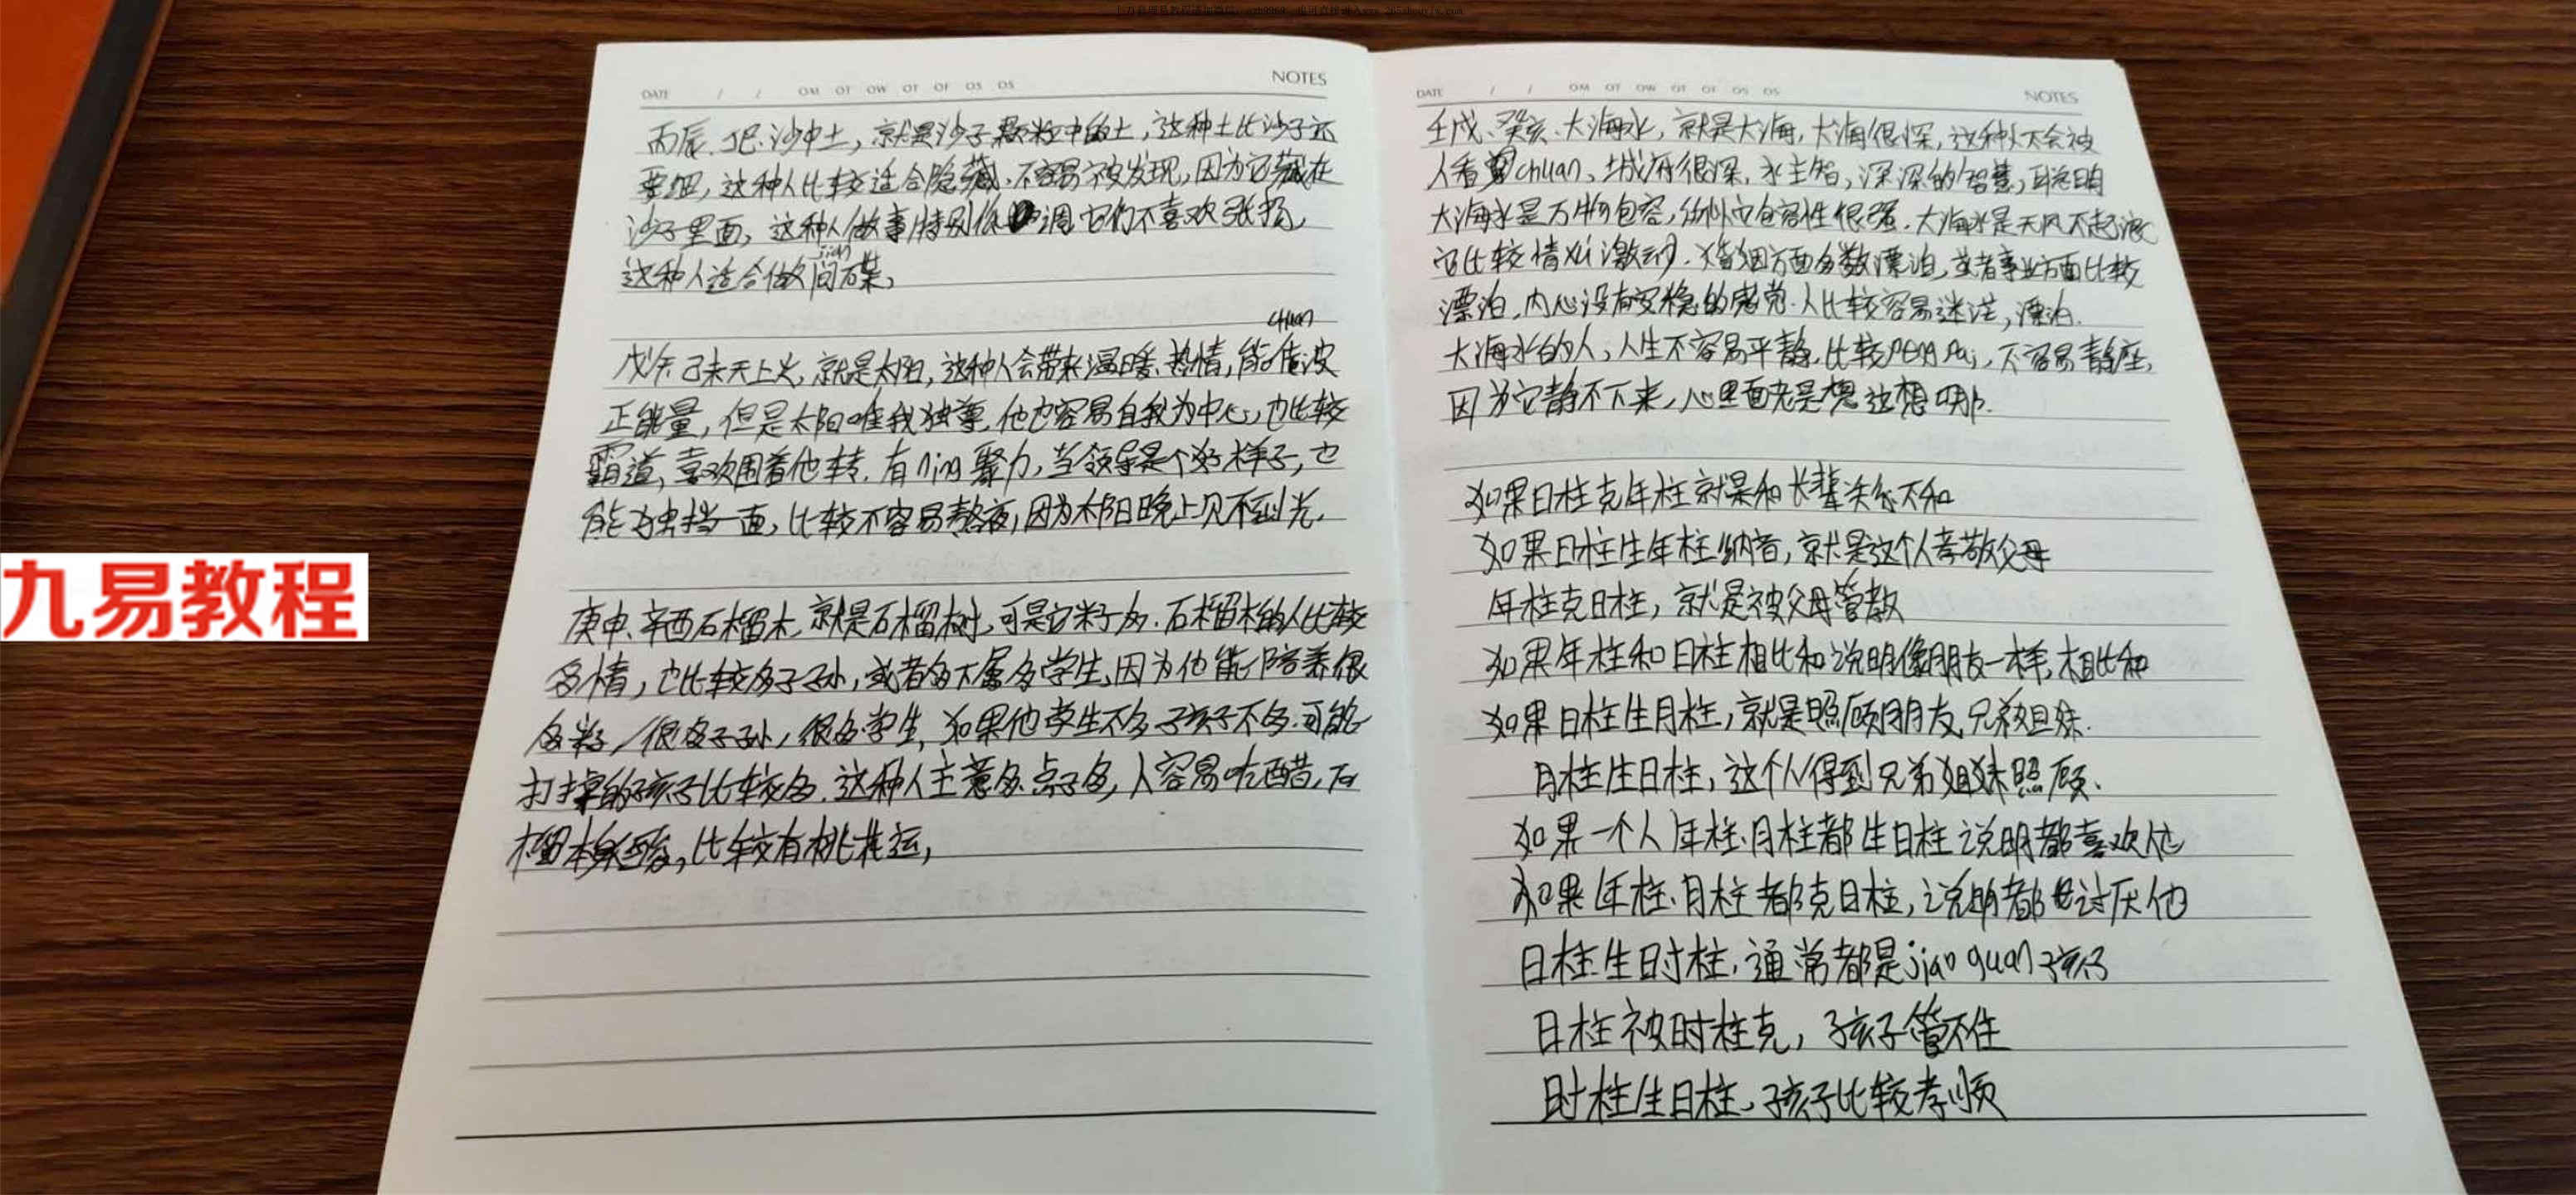 DATE / / OM OT OW OT OF OS OS NOTES
丙辰、丁巳、沙中土，就是沙子颗粒中的土，这种土比沙子还
要细，这种人比较适合隐藏、不容易被发现，因为它藏在
沙子里面，这种人做事特别低调它们不喜欢张扬，
jian
这种人适合做间碟，
chuan
戊午己未天上火，就是太阳，这种人会带来温暖、热情，能传波
正能量，但是太阳唯我独尊，他也容易自我为中心，也比较
霸道，喜欢围着他转，有ning聚力，当领导是个好样子，也
能独挡一面，比较不容易熬夜，因为太阳晚上见不到光，
庚申、辛酉石榴木，就是石榴树，可是它籽多．石榴木的人比较
多情，也比较多子孙，或者多下属多学生，因为他能培养很
多籽，很多子孙，很多学生，如果他学生不多孩子不多，可能
打掉的孩子比较多，这种人主意多点子多，人容易吃醋，石
榴木，比较有桃花运，
九易教程
DATE / / OM OT OW OT OF OS OS NOTES
壬戌、癸亥、大海水，就是大海，大海很深，这种人不会被
人看chuan、城府很深，水主智，深深的智慧，聪明
大海水是万物包容，包容性很强．大海水是无风不起浪
它比较情xu激动．婚姻方面多数漂泊，或者事业方面比较
漂泊，内心没有安稳的感觉．人比较容易迷茫，漂泊．
大海水的人，人生不容易平静，比较pen pai，不容易静座，
因为它静不下来，心里面老是想这想哪．
如果日柱克年柱就是和长辈关系不和
如果日柱生年柱纳音，就是这个人孝敬父母
年柱克日柱，就是被父母管教
如果年柱和日柱相比和说明像朋友一样，相比和
如果日柱生月柱，就是照顾朋友兄弟姐妹．
月柱生日柱，这个人得到兄弟姐妹照顾．
如果一个人年柱、月柱都生日柱说明都喜欢他
如果年柱、月柱都克日柱，说明都讨厌他
日柱生时柱，通常都是jiao guan孩子
日柱被时柱克，孩子管不住
时柱生日柱，孩子比较孝顺